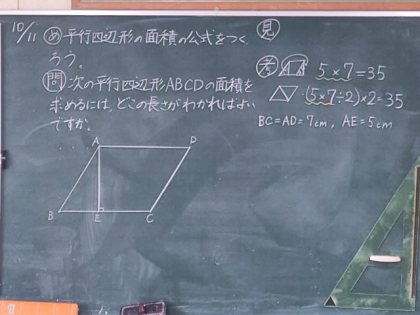 10/11 め 平行四辺形の面積の公式をつく
ろう。
問 次の平行四辺形ABCDの面積を
求めるには、どこの長さがわかればよい
ですか。
A D
B E C
見
考 5×7=35
(5×7÷2)×2=35
BC=AD=7cm, AE=5cm